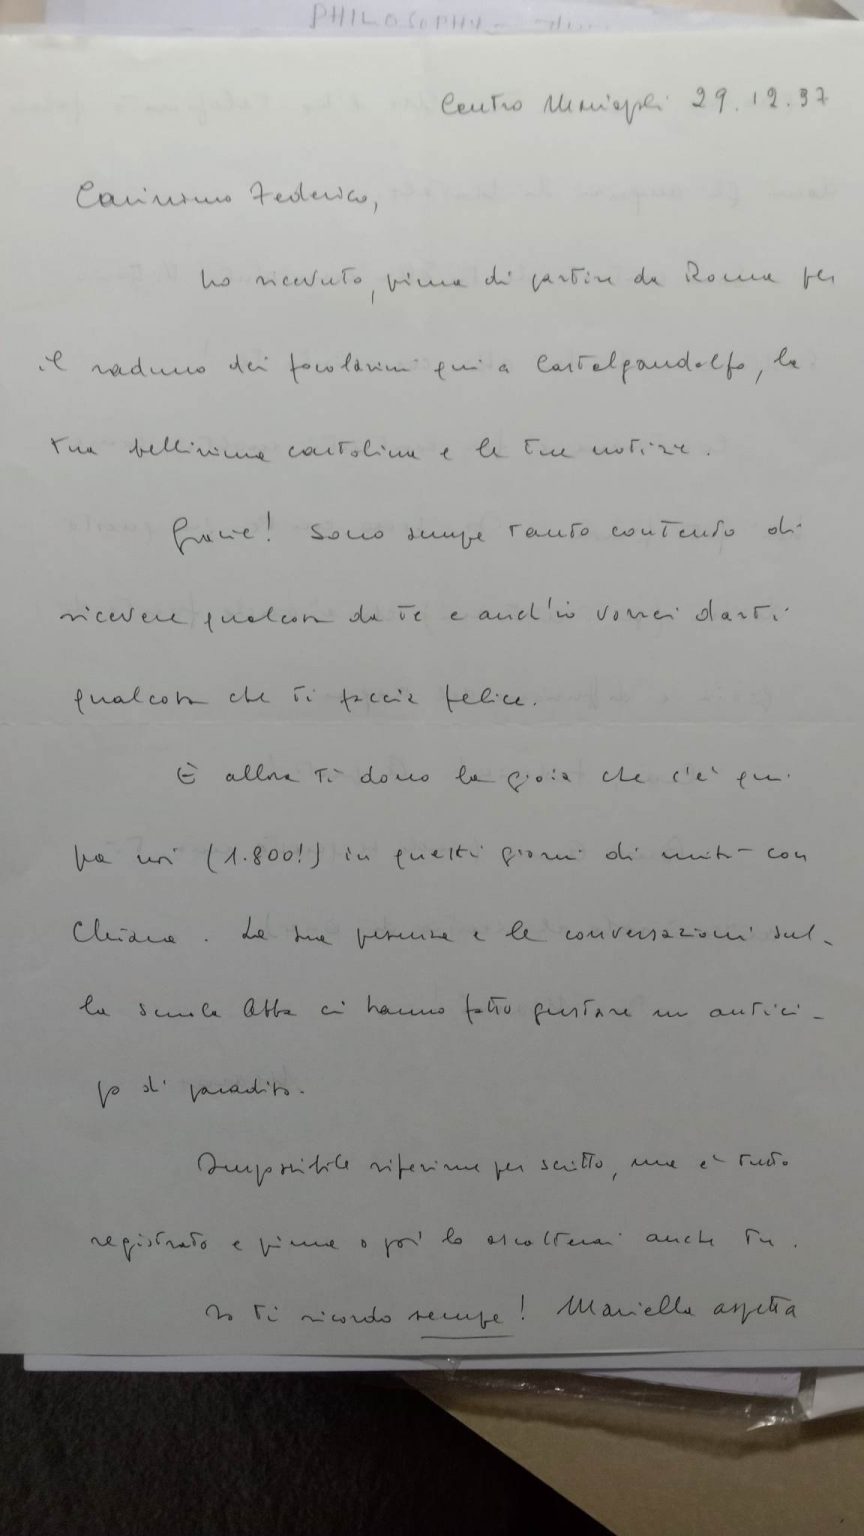 PHILOSOPHY
Centro Mariapoli 29.12.97
Carissimo Federico,
ho ricevuto, prima di partire da Roma per
il raduno dei focolarini qui a Castelgandolfo, la
tua bellissima cartolina e le tue notizie.
Grazie! Sono sempre tanto contento di
ricevere qualcosa da te e anch'io vorrei darti
qualcosa che ti faccia felice.
E allora ti dono la gioia che c'è qui
fra noi (1.800!) in questi giorni di unità con
Chiara. La sua presenza e le conversazioni sul-
la scuola Abbà ci hanno fatto gustare un antici-
po di paradiso.
Impossibile riferirne per scritto, ma è tutto
registrato e prima o poi lo ascolterai anche tu.
Io ti ricordo sempre! Mariella aspetta